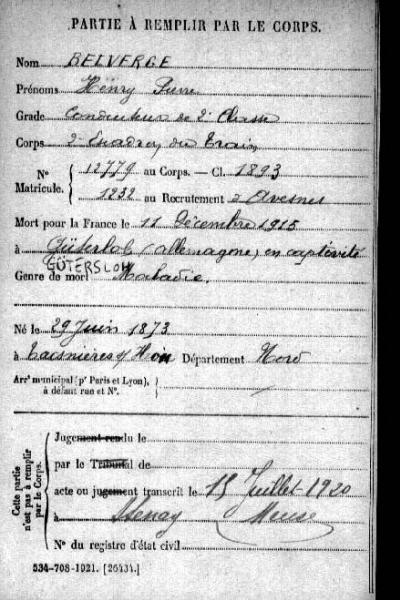 PARTIE À REMPLIR PAR LE CORPS.
Nom BELVERGE
Prénoms Henry Pierre
Grade Conducteur de 2e Classe
Corps 2e Escadron du Train
N° Matricule. { 12779 au Corps. — Cl. 1893
1232 au Recrutement à Avesnes
Mort pour la France le 11 Décembre 1915
à Güterlob (allemagne) en captivité
GÜTERSLOH
Genre de mort Maladie.
Né le 29 Juin 1873
à Taisnières s/ Hon Département Nord
Arrt municipal (pr Paris et Lyon), à défaut rue et N°.
Cette partie n'est pas à remplir par le Corps.
Jugement rendu le
par le Tribunal de
acte ou jugement transcrit le 15 Juillet 1920
à Stenay Meuse
N° du registre d'état civil
534-708-1921. [26434.]